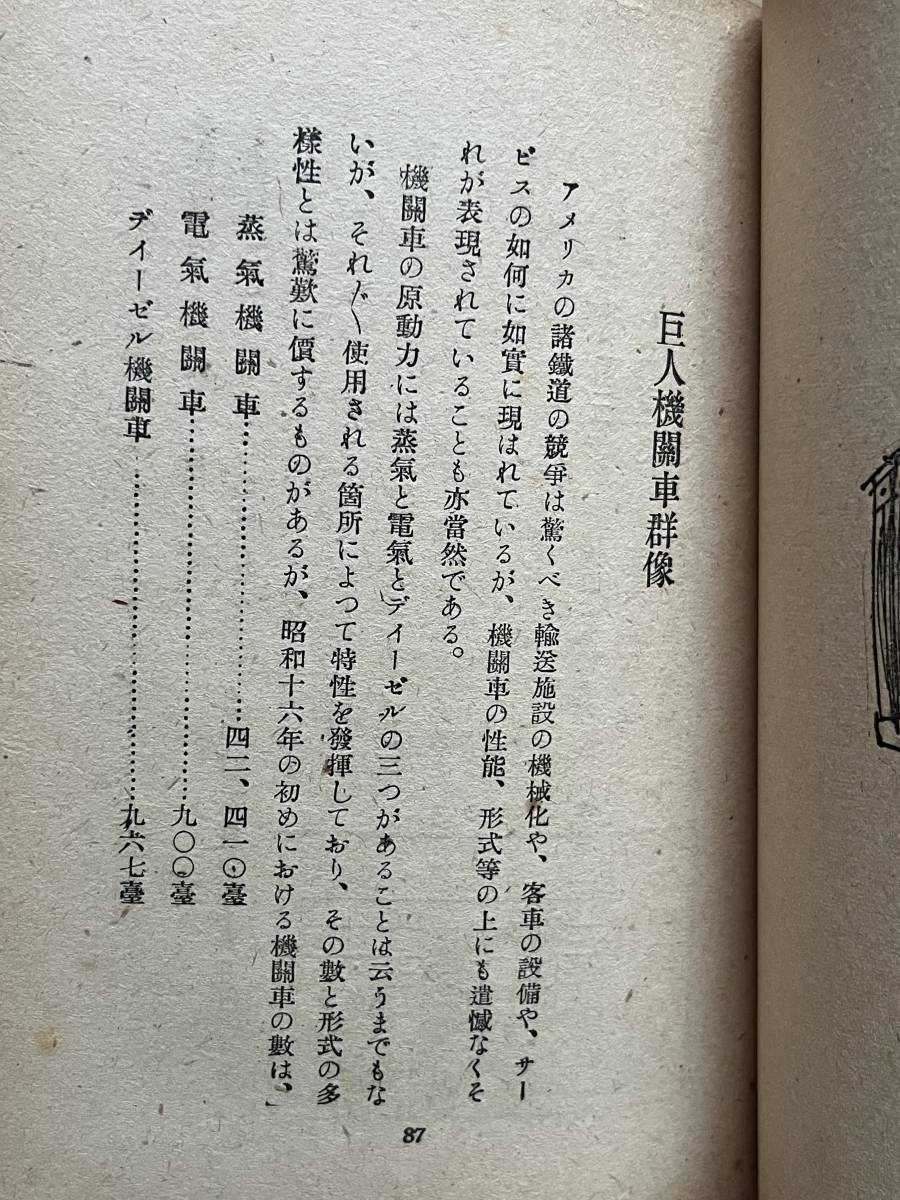 巨人機關車群像
アメリカの諸鐵道の競爭は驚くべき輸送施設の機械化や、客車の設備や、サー
ビスの如何に如實に現はれているが、機關車の性能、形式等の上にも遺憾なくそ
れが表現されていることも亦當然である。
機關車の原動力には蒸氣と電氣とディーゼルの三つがあることは云うまでもな
いが、それ〴〵使用される箇所によつて特性を發揮しており、その數と形式の多
樣性とは驚歎に價するものがあるが、昭和十六年の初めにおける機關車の數は、」
蒸氣機關車……………………四二、四一〇臺
電氣機關車……………………九〇〇臺
ディーゼル機關車……………………九六七臺
87